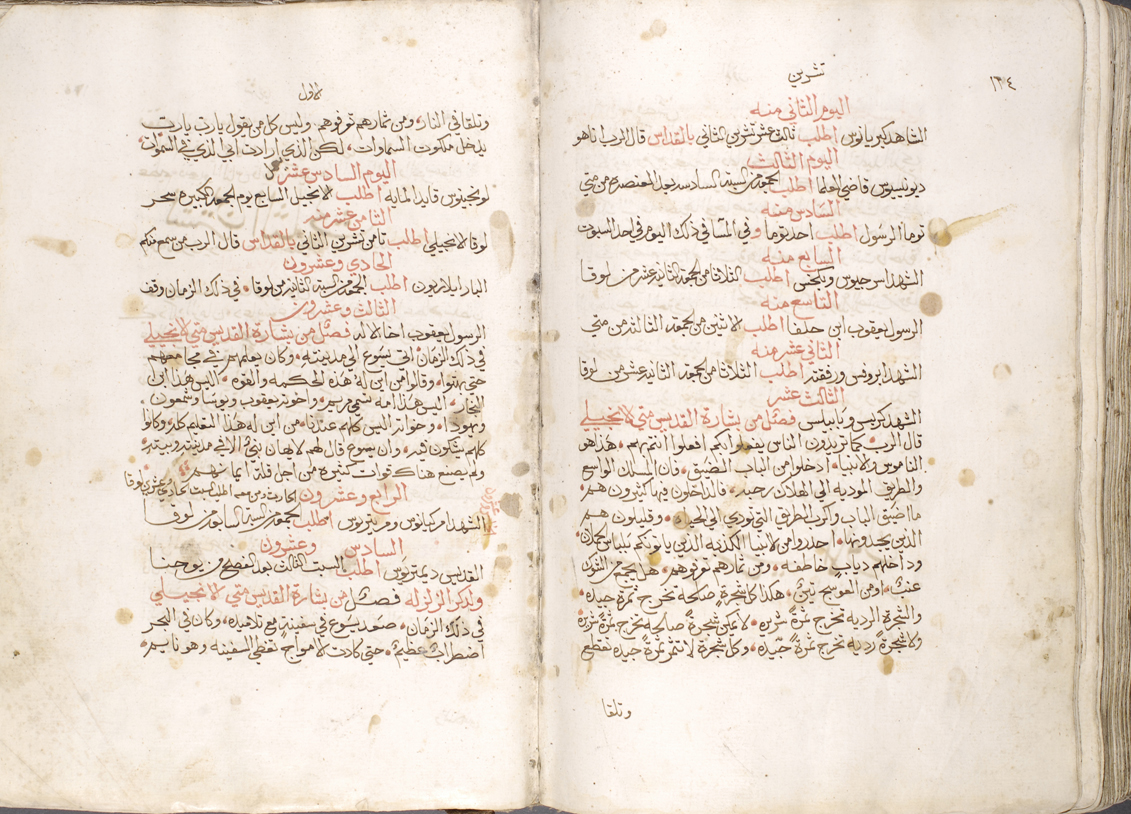 تشرين
١٣٤
اليوم الثاني منه
الشاهد كبريانوس اطلب ثالث عشر تشرين الثاني بالقداس قال الرب انا هو
اليوم الثالث
ديونيسيوس قاضي العلما اطلب الجمعه من السبة السادسه بعد العنصره من متي
السادس منه
توما الرسول اطلب احد توما وفي المسا في ذلك اليوم في احد السبوت
السابع منه
الشهدا سرجيوس وباكخس اطلب الثلاثا من الجمعة الثانية عشر من لوقا
التاسع منه
الرسول يعقوب ابن حلفا اطلب الاثنين من الجمعة الثالثة من متي
الثاني عشر منه
الشهدا بروبس ورفقته اطلب الثلاثا من الجمعة الثانية عشر من لوقا
الثالث عشر
الشهدا كربس وبابيلس فصل من بشارة القديس متي الانجيلي
قال الرب كما تريدون الناس يفعلوا بكم افعلوا انتم بهم • هذا هو
الناموس والانبيا • ادخلوا من الباب الضيق • فان المسلك الواسع
والطريق الموديه الي الهلاك رحبه • فالداخلون فيها كثيرون هم •
ما اضيق الباب واكرب الطرق التي تودي الي الحياه • وقليلون هم
الذين يجدونها • احدروا من الانبيا الكدبه الذين ياتونكم بلباس الحملان
وداخلهم دياب خاطفه • ومن ثمارهم تعرفوهم • هل يجمع من الشوك
عنبٌ • او من العوسج تينٌ • هكذا كل شجرةٍ صالحه تخرج ثمرة جيده •
والشجرة الرديه تخرج ثمرةً شريره • لا يمكن شجرةً صالحه تخرج ثمرةً شريرة
ولا شجرةً رديه تخرج ثمرةً جيّده • وكل شجرة لا تثمر ثمرةً جيده تقطع
وتلقا
الاول
وتلقا في النار • ومن ثمارهم تعرفوهم • وليس كل من يقول يارب يارب
يدخل ملكوت السماوات • لكن الذي ارادت ابي الذي في السموت •
اليوم السادس عشر
لونجينوس قايد المايه اطلب الانجيل السابع يوم الجمعه الكبيره سحر
الثامن عشر منه
لوقا الانجيلي اطلب ثامن تشرين الثاني بالقداس قال الرب من سمع منكم
الحادي وعشرون
البار ايلاريون اطلب الجمعه من السبة الثانية من لوقا • في ذلك الزمان وقف
الثالث وعشرون
الرسول يعقوب اخا الاله فصل من بشارة القديس متي الانجيلي
في ذلك الزمان • اتي يسوع الي مدينته • وكان يعلمهم في مجامعهم
حتي بهتوا • وقالوا من اين له هذه الحكمه والقوه • اليس هذا ابن
النجار • اليس هذا امه تسمي مريم • واخوته يعقوب ويوسا وسمعون
ويهودا • وخواته اليس كلهم عندنا • من اين له هذا المقلم كله • وكانوا
كلهم يشكون فيه • وان يسوع قال لهم لا يهان نبيٌ الا في مدينته وبيته •
ولم يصنع هناك قوات كثيره من اجل قلة ايمانهم
الرابع وعشرون
الشهدا مركيانوس ومرتيريوس اطلب الجمعه من السبة السابعه من لوقا
السادس وعشرون
القديس ديمتريوس اطلب السبت الثالث بعد الفصح من يوحنا
ولذكر الزلزله فصل من بشارة القديس متي الانجيلي
في ذلك الزمان • صعد يسوع في سفينةٍ مع تلاميده • وكان في البحر
اضطرابٌ عظيم • حتي كادت الامواج تغطي السفينه وهو نايم •